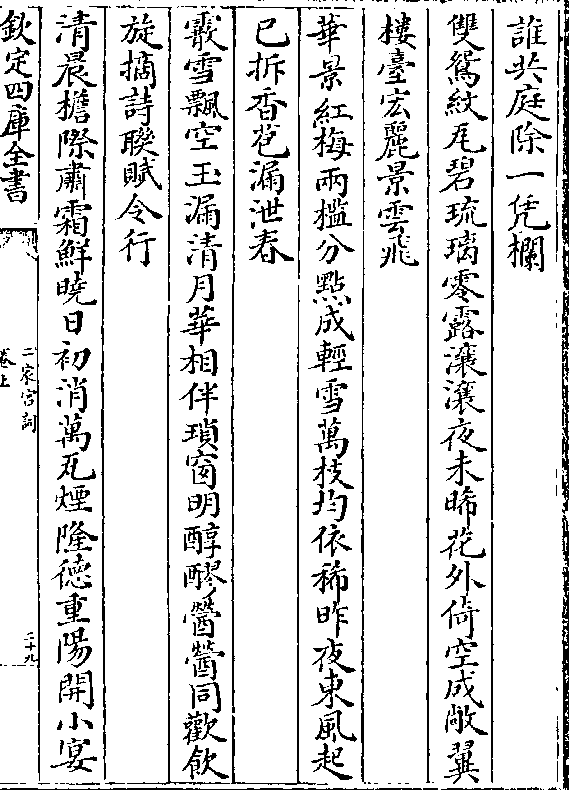 誰共庭除一凭欄
雙鴛紋瓦碧琉璃零露瀼瀼夜未晞花外倚空成敞翼
樓臺宏麗景雲飛
華景紅梅兩檻分點成輕雪萬枝均依稀昨夜東風起
已拆香苞漏泄春
霰雪飄空玉漏清月華相伴瑣窗明醇醪醟醟同歡飲
旋摘詩聯賦令行
清晨檐際肅霜鮮曉日初消萬瓦煙隆德重陽開小宴
欽定四庫全書
二家宮詞
卷上
二十九